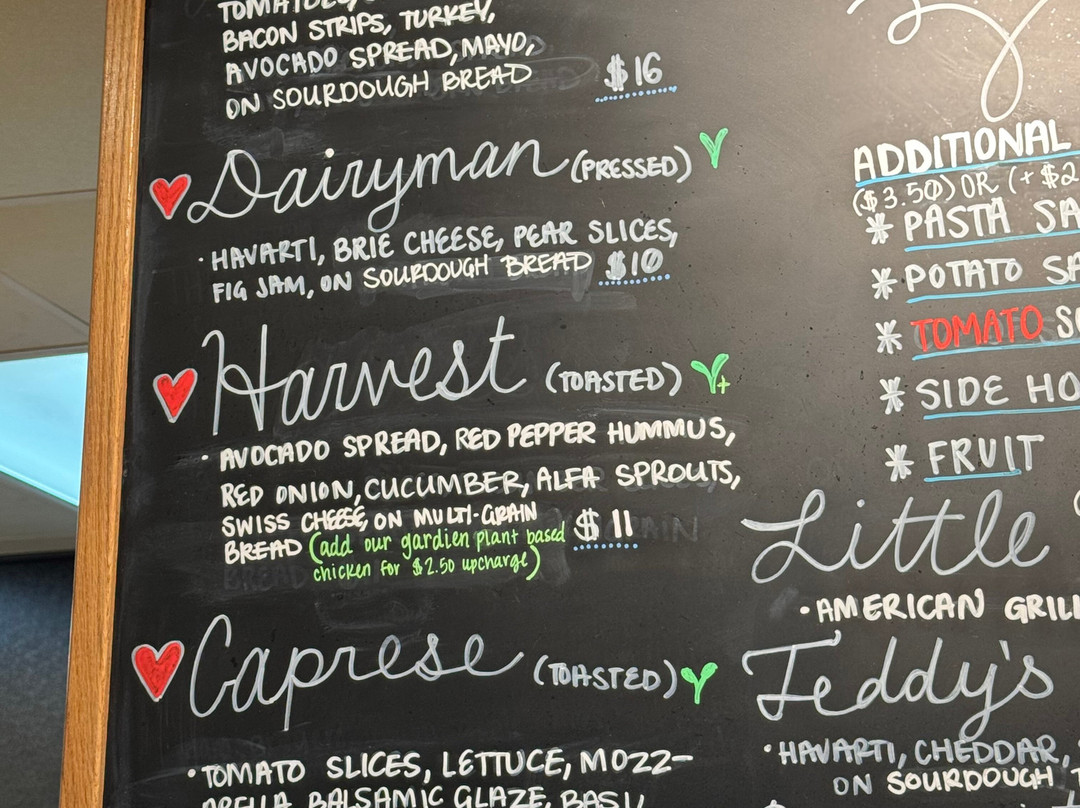 BACON STRIPS, TURKEY,
AVOCADO SPREAD, MAYO,
ON SOURDOUGH BREAD $16
Dairyman (PRESSED)
· HAVARTI, BRIE CHEESE, PEAR SLICES,
FIG JAM, ON SOURDOUGH BREAD $10
Harvest (TOASTED)
· AVOCADO SPREAD, RED PEPPER HUMMUS,
RED ONION, CUCUMBER, ALFA SPROUTS,
SWISS CHEESE, ON MULTI-GRAIN
BREAD (add our gardien plant based $11
chicken for $2.50 upcharge)
Caprese (TOASTED)
· TOMATO SLICES, LETTUCE, MOZZ-
ARELLA BALSAMIC GLAZE, BASIL
ADDITIONAL
($3.50) OR (+$2
* PASTA SA
* POTATO SA
* TOMATO SO
* SIDE HO
* FRUIT
Little
· AMERICAN GRIL
Teddy's
· HAVARTI, CHEDDAR,
ON SOURDOUGH